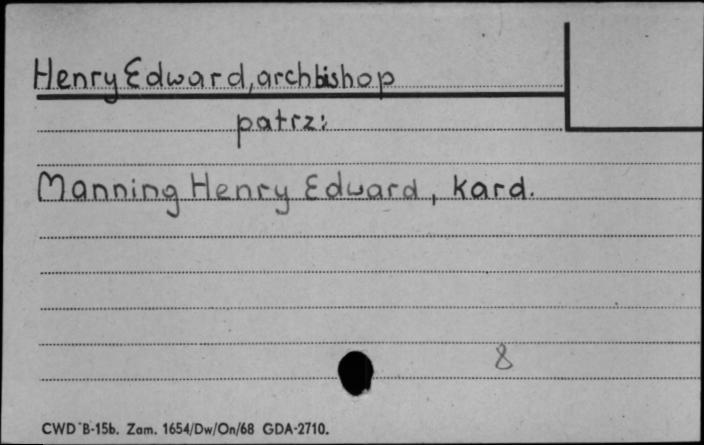 Henry Edward, archbishop
patrz:
Manning Henry Edward, kard.
8
CWD B-15b. Zam. 1654/Dw/On/68 GDA-2710.